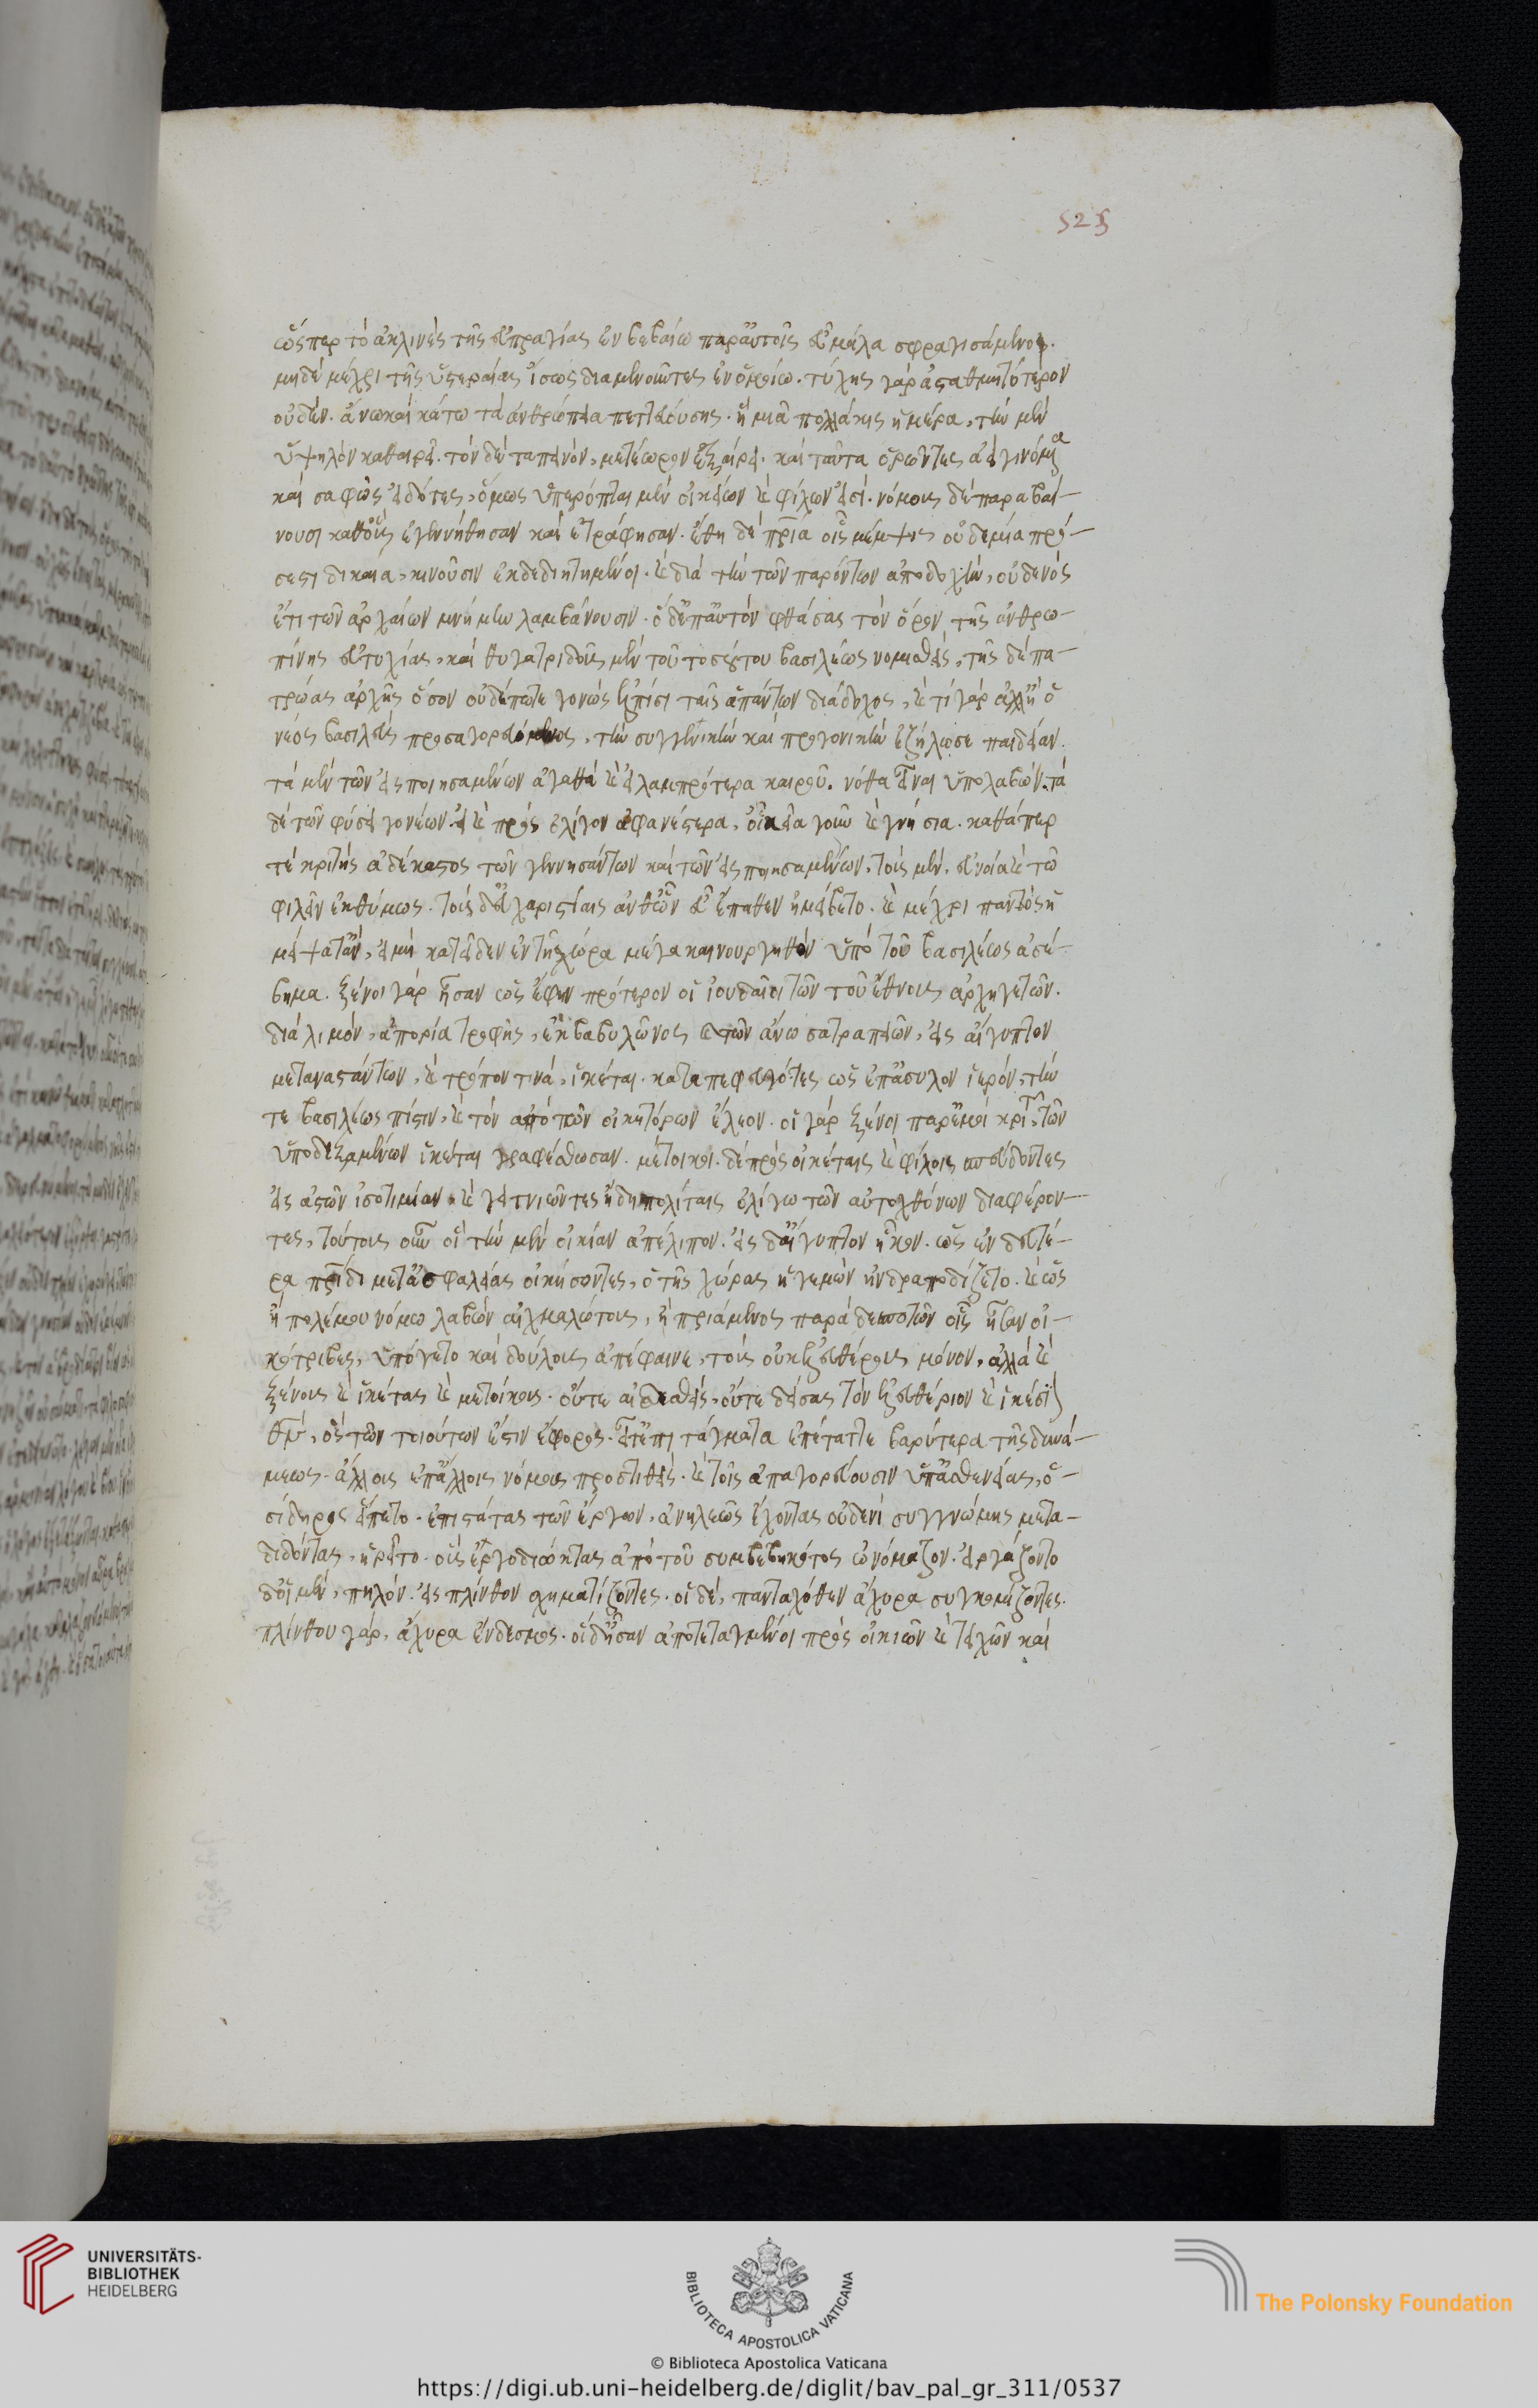 525
ὥσπερ τὸ ἀκλινὲς τῆς εὐπραγίας ἐν βεβαίω παρ' αὐτοῖς εὖ μάλα σφραγισάμενοι.
μηδὲ μέχρι τῆς ὑστεραίας ἴσως διαμενοῦντες ἐν ὁμοίω. τύχης γὰρ ἀσταθμητότερον
οὐδέν. ἄνω καὶ κάτω τὰ ἀνθρώπεια πεττευούσης. ἣ μιᾶ πολλάκις ἡμέρα, τὸν μὲν
ὑψηλὸν καθαιρεῖ. τὸν δὲ ταπεινὸν, μετέωρον ἐξαίρει. καὶ ταῦτα ὁρῶντες ἀεὶ γινόμενα
καὶ σαφῶς εἰδότες, ὅμως ὑπερόπται μὲν οἰκείων καὶ φίλων εἰσί. νόμους δὲ παραβαί-
νουσι καθ' οὓς ἐγεννήθησαν καὶ ἐτράφησαν. ἔθη δὲ πρια οἷς μέμψις οὐδεμία πρό-
σεστι δικαια, κινοῦσιν ἐκδεδιητημένοι. καὶ διὰ τὴν τῶν παρόντων ἀποδοχὴν, οὐδενὸς
ἔτι τῶν ἀρχαίων μνήμην λαμβάνουσιν. ὁ δὲ ἐπ' αὐτὸν φθάσας τὸν ὅρον τῆς ἀνθρω-
πίνης εὐτυχίας, καὶ θυγατριδοῦς μὲν τοῦ τοσούτου βασιλέως νομισθεὶς, τῆς δὲ πα-
τρώας ἀρχῆς ὅσον οὐδέπωτε γονὼς ἐλπίσι ταῖς ἁπάντων διάδοχος, καὶ τί γὰρ ἀλλ' ἢ ὁ
νέος βασιλεὺς προσαγορευόμενος, τὴν συγγενικὴν καὶ προγονικὴν ἐζήλωσε παιδείαν.
τὰ μὲν τῶν εἰσποιησαμένων ἀγαθὰ καὶ εἰ λαμπρότερα καιροῦ. νόθα εἶναι ὑπολαβών. τὰ
δὲ τῶν φύσει γονέων. εἰ καὶ πρὸς ὀλίγον ἀφανέστερα, οἰκεῖα γοῦν καὶ γνήσια. καθάπερ
τὲ κριτὴς ἀδέκαστος τῶν γεννησάντων καὶ τῶν εἰσποιησαμένων, τοὺς μὲν, εὐνοία καὶ τῶ
φιλεῖν ἐκθύμως. τοὺς δ' εὐχαριστίαις ἀνθ' ὧν εὖ ἔπαθεν ἠμείβετο. καὶ μέχρι παντὸς ἠ
μείψατ' ἄν, εἰ μὴ κατεῖδεν ἐν τῆ χώρα μέγα καινουργηθὲν ὑπὸ τοῦ βασιλέως ἀσέ-
βημα. ξένοι γὰρ ἦσαν ὡς ἔφην πρότερον οἱ ἰουδαῖοι τῶν τοῦ ἔθνους ἀρχηγετῶν.
διὰ λιμὸν, ἀπορία τροφῆς, ἐκ βαβυλῶνος καὶ τῶν ἄνω σατραπειῶν, εἰς αἴγυπτον
μεταναστάντων, καὶ τρόπον τινὰ, ἱκέται. καταπεφευγότες ὡς ἐπ' ἄσυλον ἱερὸν, τήν
τε βασιλέως πίστιν, καὶ τὸν ἀπὸ τῶν οἰκητόρων ἔλεον. οἱ γὰρ ξένοι παρ' ἐμοὶ κριτῆ, τῶν
ὑποδεξαμένων ἱκέται γραφέσθωσαν. μέτοικοι. δὲ πρὸς οἰκέταις καὶ φίλοις σπεύδοντες
εἰς ἀστῶν ἰσοτιμίαν. καὶ γειτνιῶντες ἤδη πολίταις ὀλίγω τῶν αὐτοχθόνων διαφέρον-
τες, τούτους οὖν οἳ τὴν μὲν οἰκίαν ἀπέλιπον. εἰς δ' αἴγυπτον ἧκον. ὡς ἐν δευτέ-
ρα πρίδι μετ' ἀσφαλείας οἰκήσοντες, ὁ τῆς χώρας ἡγεμὼν ἠνδραποδίζετο. καὶ ὡς
ἢ πολέμου νόμω λαβὼν αἰχμαλώτους, ἢ πριάμενος παρὰ δεσποτῶν οἷς ἦσαν οἰ-
κότριβες, ὑπήγετο καὶ δούλους ἀπέφαινε, τοὺς οὐκ ἐλευθέρους μόνον, ἀλλὰ καὶ
ξένους καὶ ἱκέτας καὶ μετοίκους. οὔτε αἰδεσθεὶς, οὔτε δείσας τὸν ἐλευθέριον καὶ ἱκέσιον
θν, ὃς τῶν τοιούτων ἐστὶν ἔφορος. εἶτ' ἐπι τάγματα ἐπέταττε βαρύτερα τῆς δυνά-
μεως. ἄλλοις ἐπ' ἄλλοις νόμους προστιθείς. καὶ τοῖς ἀπαγορεύουσιν ὑπ' ἀσθενείας, ὁ-
σίδηρος εἵπετο. ἐπιστάτας τῶν ἔργων, ἀνηλεῶς ἔχοντας οὐδενὶ συγγνώμης μετα-
διδόντας, ἡρεῖτο. οὓς ἐργοδιώκτας ἀπὸ τοῦ συμβεβηκότος ὠνόμαζον. εἰργάζοντο
δ' οἱ μὲν, πηλὸν. εἰς πλίνθον σχηματίζοντες. οἱ δὲ, πανταχόθεν ἄχυρα συγκομίζοντες.
πλίνθου γὰρ, ἄχυρα ἔνδεσμος. οἱ δ' ἦσαν ἀποτεταγμένοι πρὸς οἰκιῶν καὶ τειχῶν καὶ
UNIVERSITÄTS-
BIBLIOTHEK
HEIDELBERG
BIBLIOTECA APOSTOLICA VATICANA
The Polonsky Foundation
© Biblioteca Apostolica Vaticana
https://digi.ub.uni-heidelberg.de/diglit/bav_pal_gr_311/0537